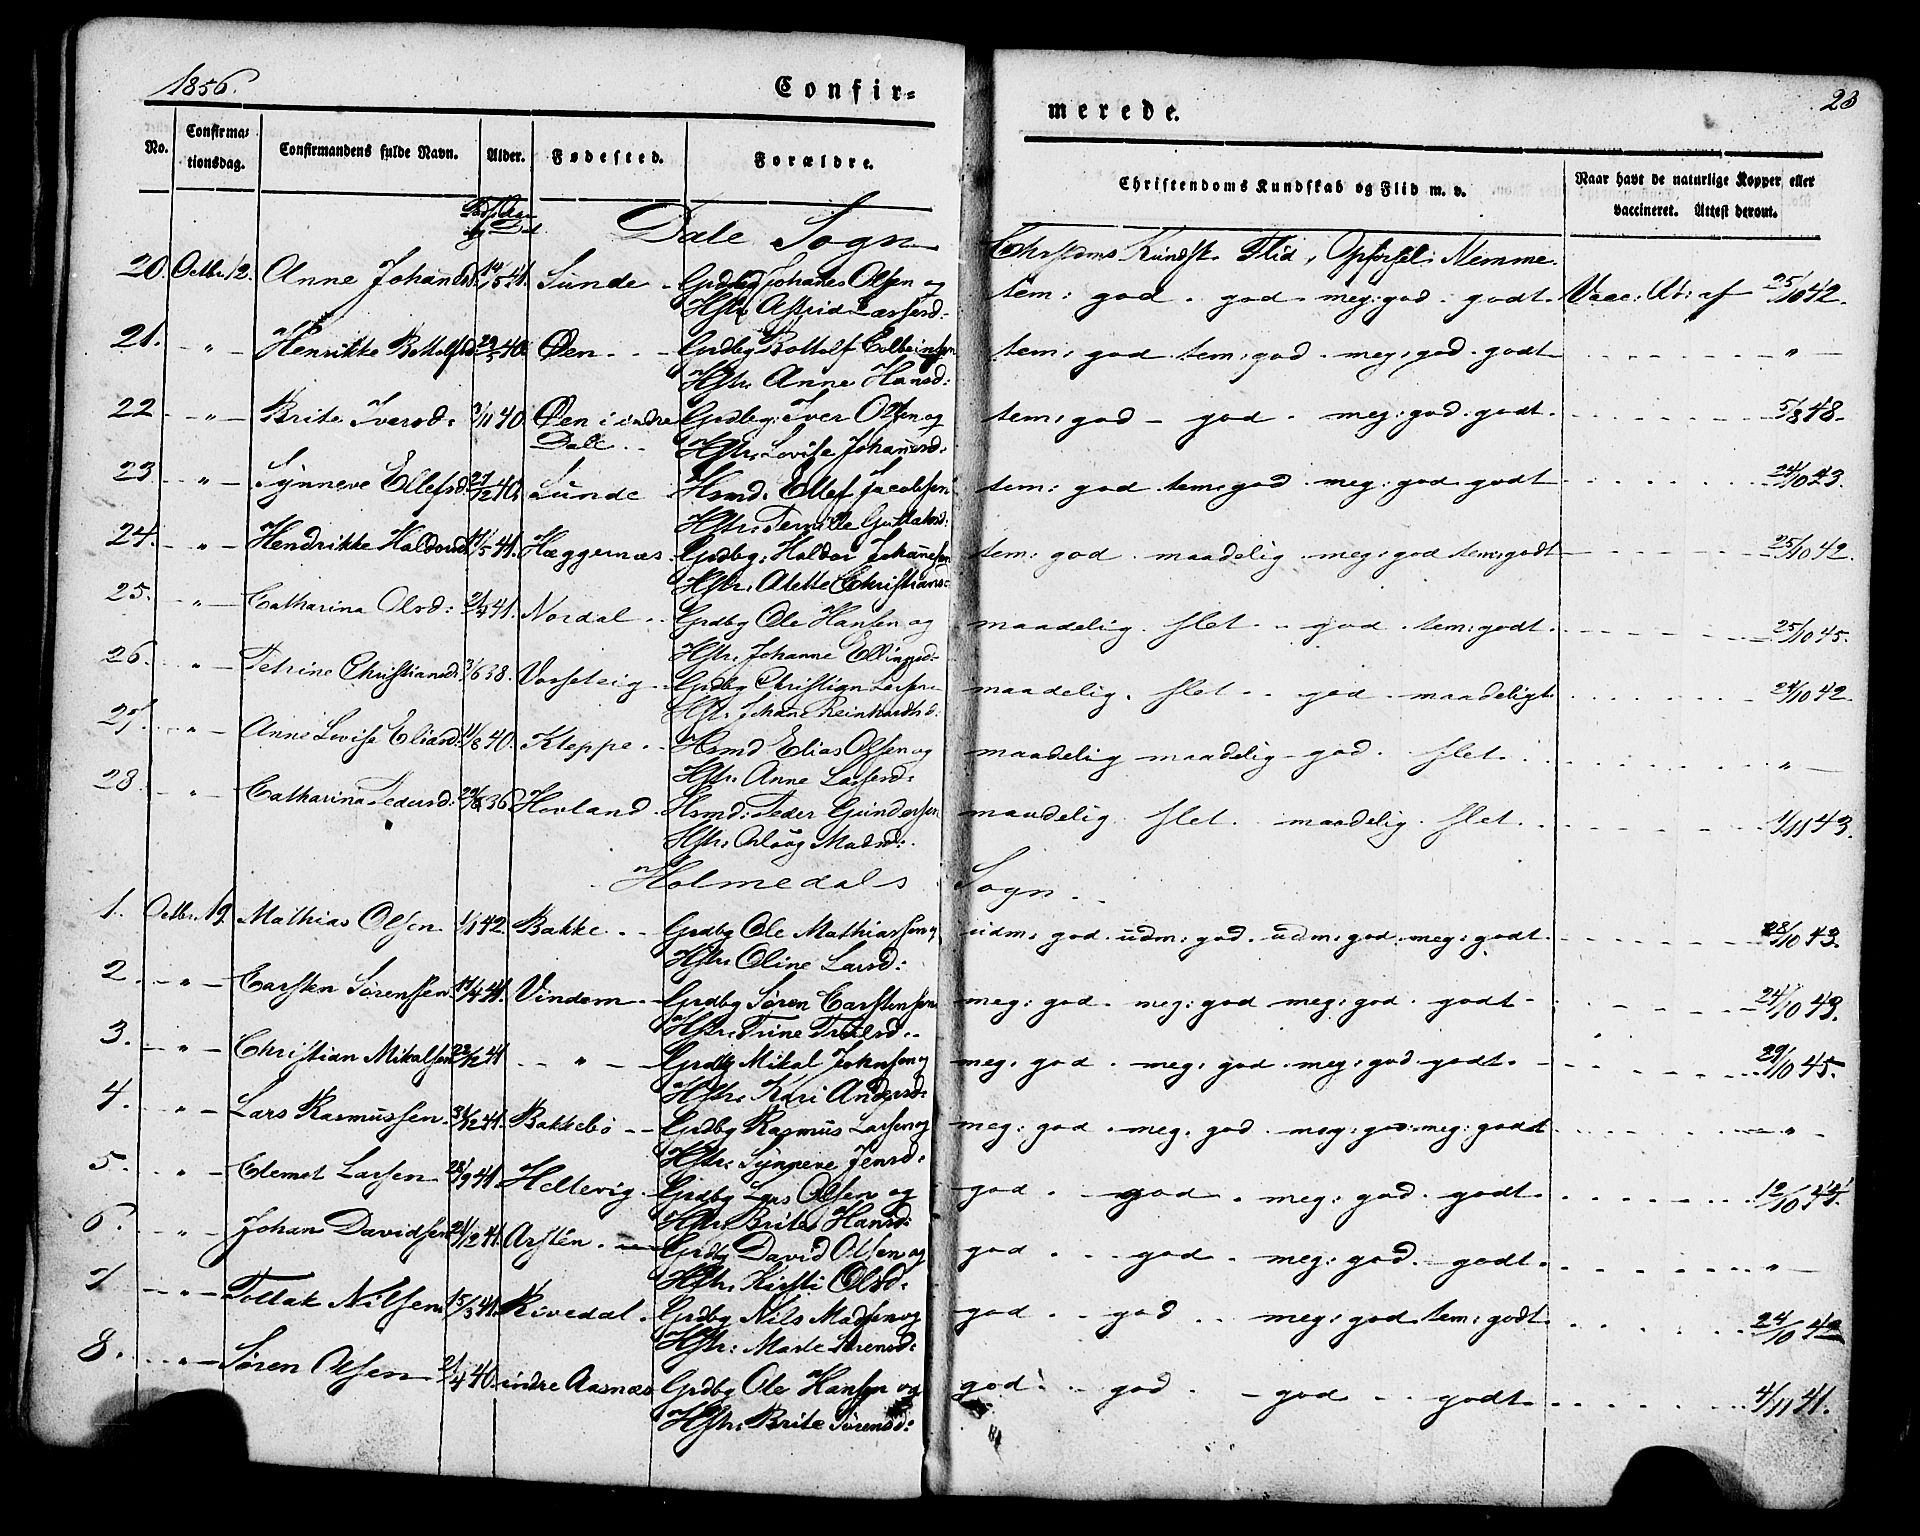 1856.
Confir=
merede.
23
No.
Confirma=
tionsdag.
Confirmandens fulde Navn.
Alder.
Fødested.
Forældre.
Christendoms Kundskab og Flid m. v.
Naar havt de naturlige Kopper eller
vaccineret. Attest derom.
Dale Sogn
Kundsk. Flid, Opførsel. Nemme.
20. Octbr 12. Anne Johansd. 14/5 41. Sunde Grdbg Johanes Olsen og tem: god . god . meg: god . godt. Vacc: At: af 25/10 42.
Hstr. Astrid Larsesd.
21. „ Henrikke Bottolfsd 40 Øen Grdbg Bottolf tem: god tem: god . meg: god . godt „
Hstr. Anne Hansd:
22 „ Brite Iversd. 3/11 40 Øen i indre Grdbg: Iver Olsen og tem: god god . meg: god . godt. 5/8 48.
Dale Hstr. Lovise Johannesd:
23 „ Synneve Ellefsd. 27/12 40. Sunde Hsmd. Ellef Jacobsen tem: god . tem: god . meg: god . godt 24/10 23.
Hstr:
24. „ Hendrikke Haldorsd 11/5 41. Hæggernæs Grdbg: Haldor Johannesen tem: god . maadelig . meg: god tem: godt 25/10 42.
Hstr. Alette Christiansd:
25. „ Catharina Olsd: 2/4 41. Nordal Grdbg Ole Hansen og maadelig . slet . god . tem: godt. 25/10 45.
Hstr. Johanne Ellingsd.
26. „ Petrine Christiansd. 3/6 38. Vorseteig Grdbg Christian Larsen maadelig . slet . god . maadeligt 24/10 42.
Hstr. Johane Reinhardtsd:
27. „ Anne Lovise Eliasd. 11/8 40. Kleppe Hsmd Elias Olsen og maadelig maadelig god . slet. „
Hstr. Anne Larsesd.
28. „ Catharina Pedersd: 36 Hovland Hsmd: Peder Gundersen maadelig . slet . maadelig . slet. 1/11 43.
Hstr: Madsd:
Holmedals Sogn
1. Octbr 19. Mathias Olsen. 1/1 42. Bakke Grdbg Ole Mathiassen og udm: god . udm: god . udm: god . meg: godt. 28/10 43.
Hstr. Oline Larsd:
2 „ Carsten Sørensen. 17/4 41. Vindem Grdbg Søren Carstensen meg: god . meg: god meg: god . godt 24/10 43.
Hstr: Trine
3. „ Christian Mikalsen 23/12 41 „ Grdbg Mikal Johnsen og meg: god . meg: god . meg: god . godt. 29/10 45.
Hstr. Kari Andersd:
4. „ Lars Rasmussen. 31/12 41. Bakkebø Grdbg Rasmus Larsen og meg: god . meg. god . meg: god: meg: godt „
Hstr. Synneve Jensd:
5. „ Clemet Larsen 28/9 41 Hellevig Grdbg Lars Olsen og god . god . meg: god . godt. 12/10
Hstr. Brite Hansd:
6. „ Johan Davidsen 21/12 41. Arstén. Grdbg David Olsen og god . god . meg: god . godt. „
Hstr. Kirsti Olsd:
7 „ Tollak Nilsen 15/3 41. Rivedal. Grdbg Nils Madsen og god . god meg: god tem: godt. 24/10 42
Hstr: Marte Sørensd:
8. „ Søren Olsen 2/4 40. indre Aasnæs Grdbg Ole Hansen og god . god . god . godt. 4/11 41.
Hstr. Brite Sørensd: